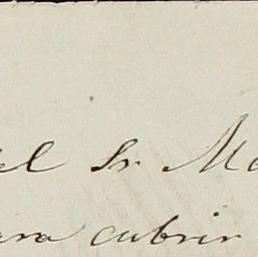 el Sr Mo
ara cubrir